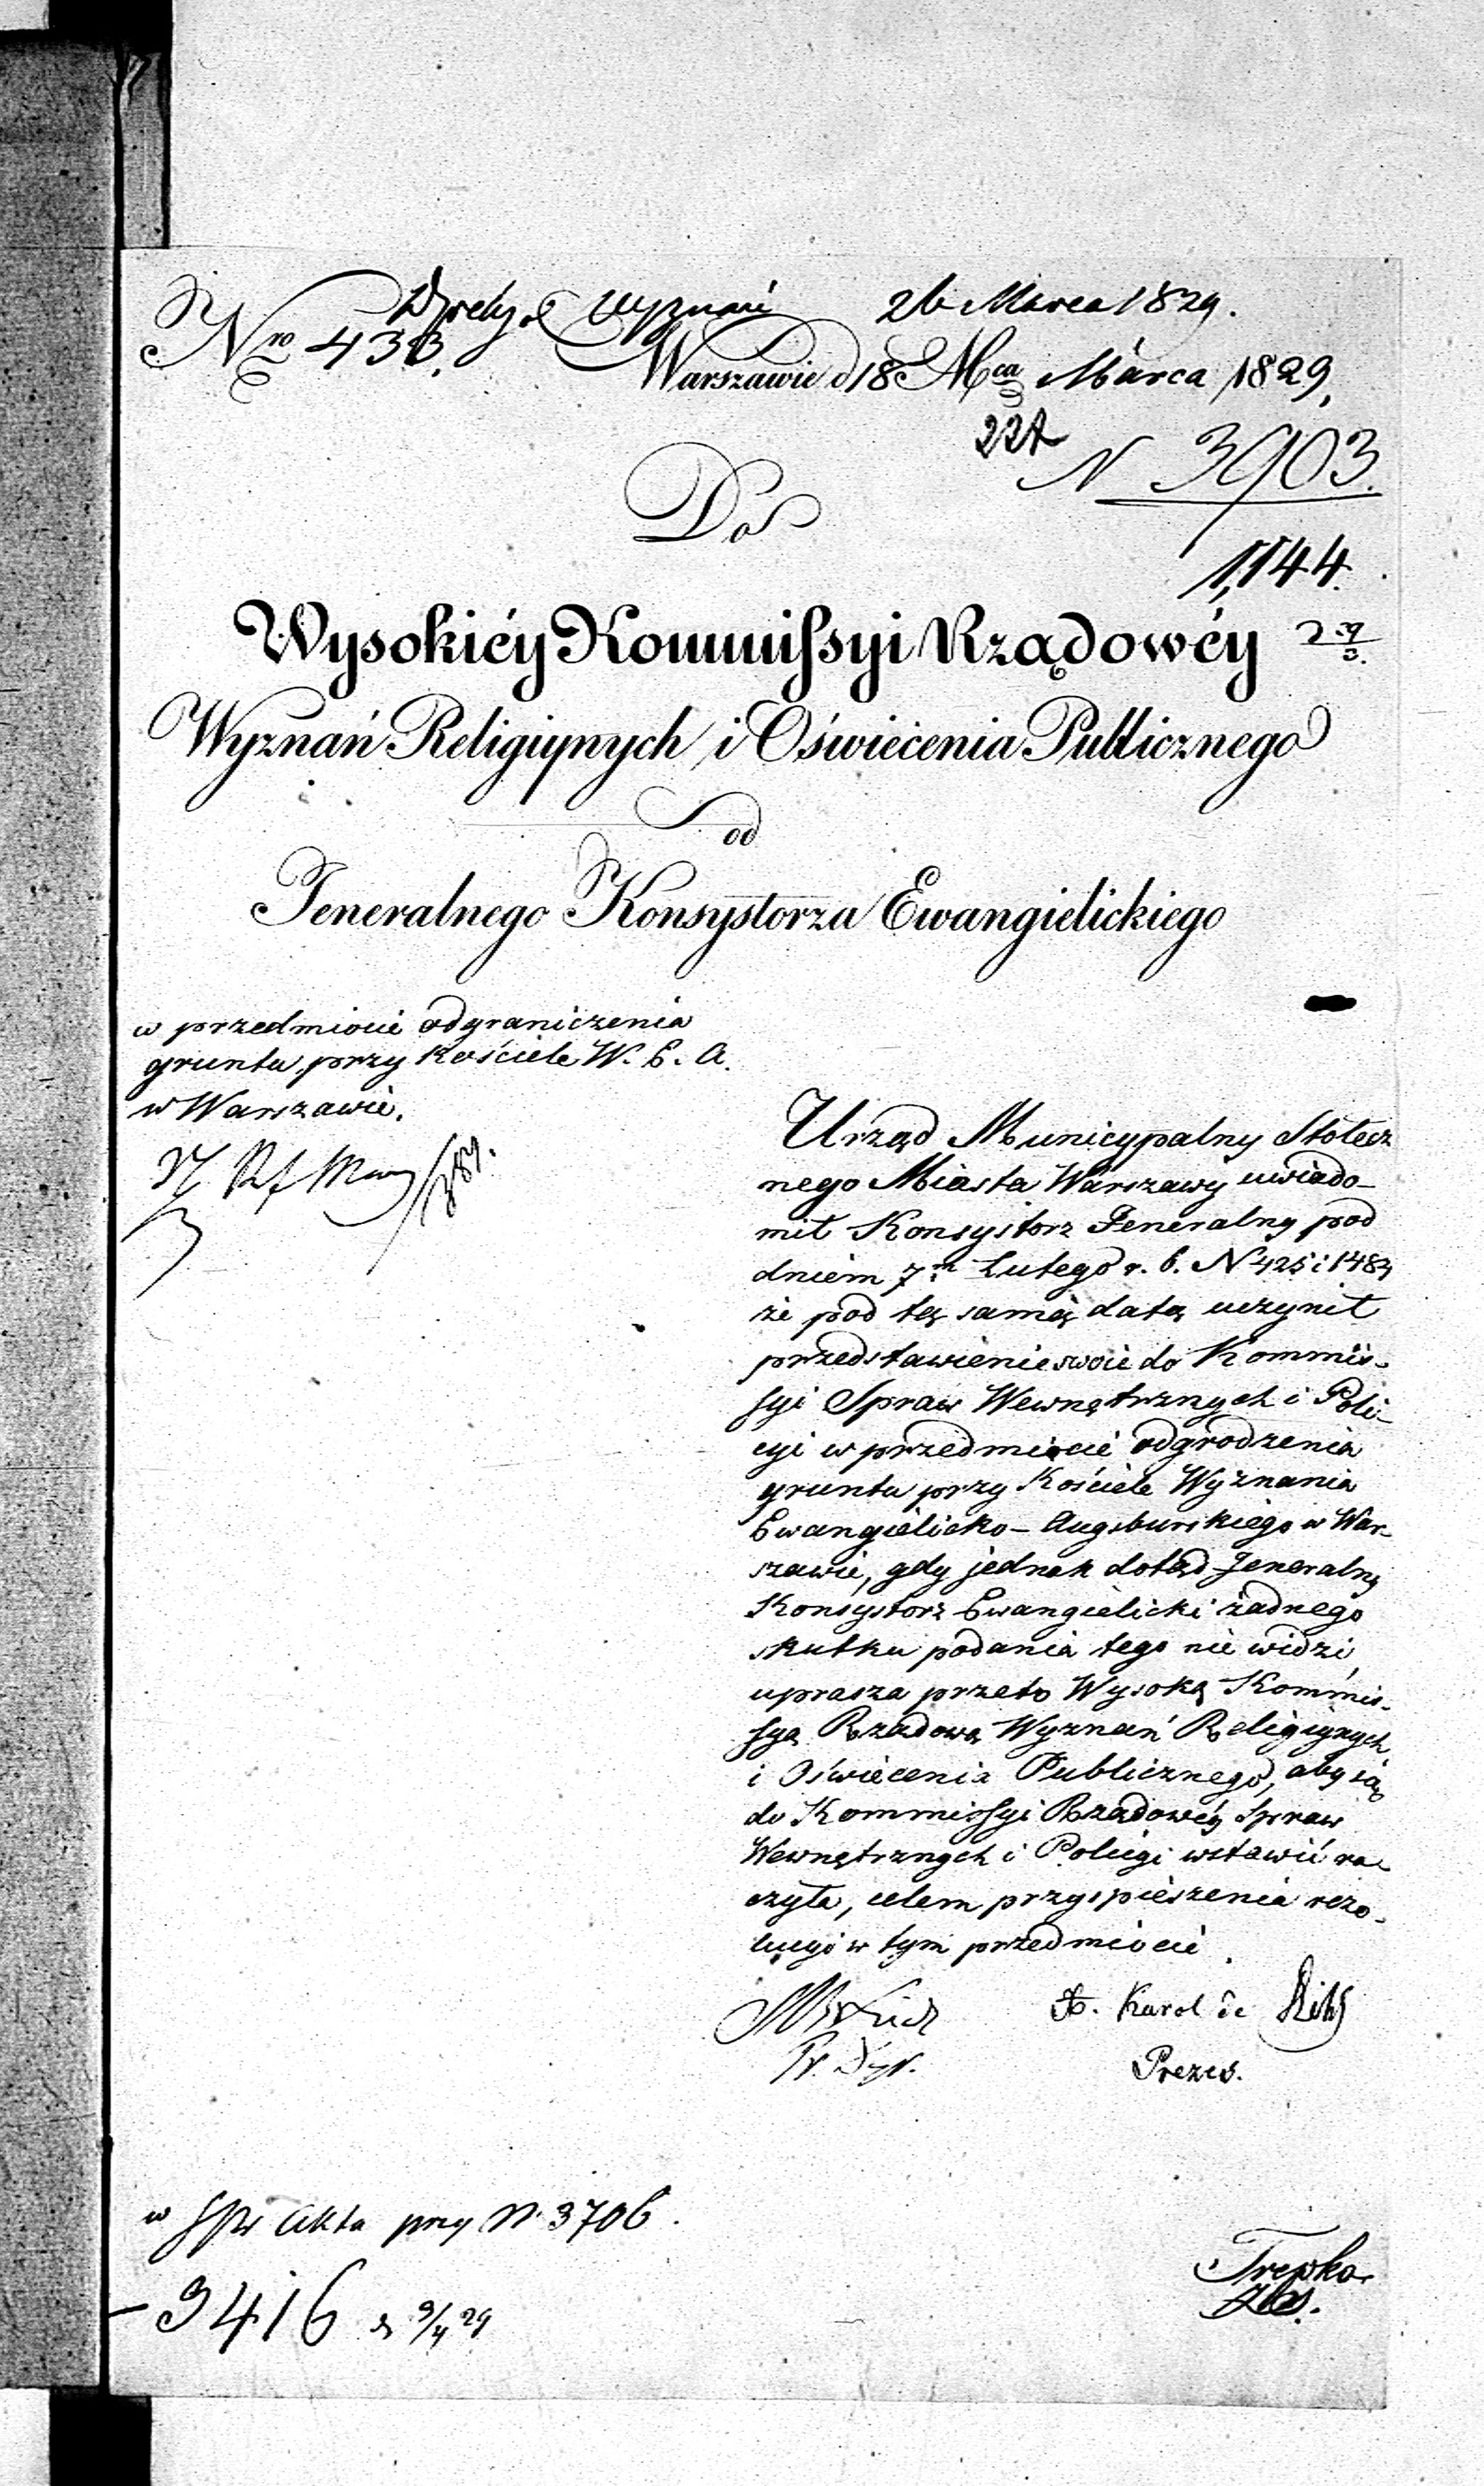 Nro 433.
Wyznań 26 Marca 1829.
Warszawie d 18 Mca Marca 1829.
227
N 3903.
1,144.
Do
Wysokiéy Kommissyi Rządowéy
Wyznań Religiynych i Oświécenia Publicznego
od
Jeneralnego Konsystorza Ewangielickiego
w przedmiocie odgraniczenia
gruntu przy Kościele W. E. A.
w Warszawie.
Urząd Municypalny Stołecz
nego Miasta Warszawy uwiado-
mił Konsystorz Jeneralny pod
dniem 7m Lutego r. b. N 425 i 1483
że pod tą samą datą uczynił
przedstawienie swoie do Kommis-
syi Spraw Wewnętrznych i Poli-
cyi w przedmiocie odgrodzenia
gruntu przy Kościele Wyznania
Ewangielicko-Augsburskiego w War-
szawie, gdy jednak dotąd Jeneralny
Konsystorz Ewangielicki żadnego
skutku podania tego nie widzi,
uprasza przeto Wysoką Kommis-
syą Rządową Wyznań Religiynych
i Oświecenia Publicznego, aby się
do Kommissyi Rządowéy Spraw
Wewnętrznych i Policyi wstawić ra-
czyła, celem przyspieszenia rezo-
lucyi w tym przedmiocie.
Karol de
Prezes.
w akta przy N. 3706.
9416 d 9/4 29
Trepka